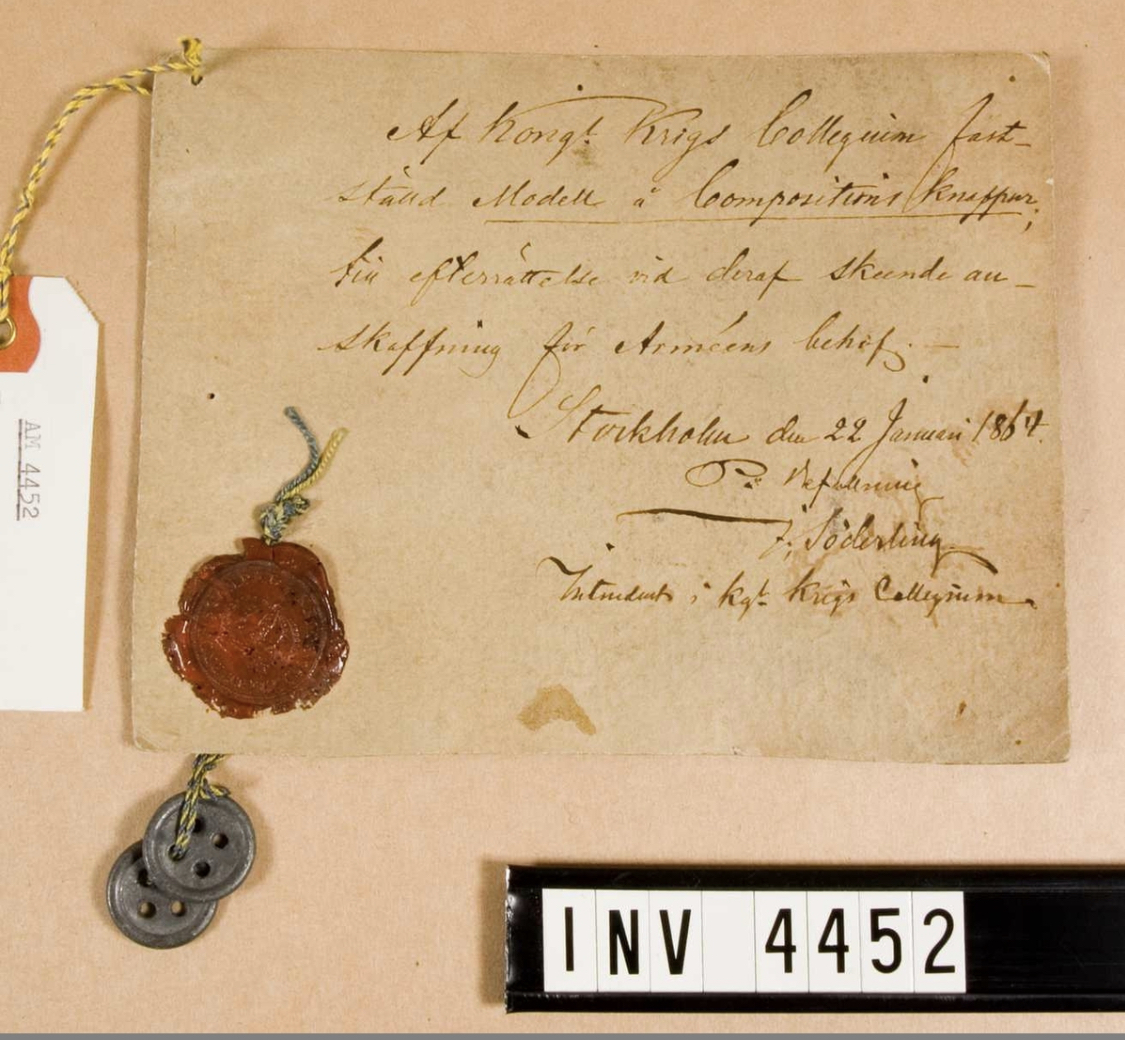 Af Kongl. Krigs Collegium fast-
ställd Modell å Compositions knappar,
till efterrättelse vid deraf skeende an-
skaffning för Arméens behof. —
Stockholm den 22 Januari 1864.
På Befallning
J. Söderling
Intendent i Kgl. Krigs Collegium.
AM 4452
INV 4452